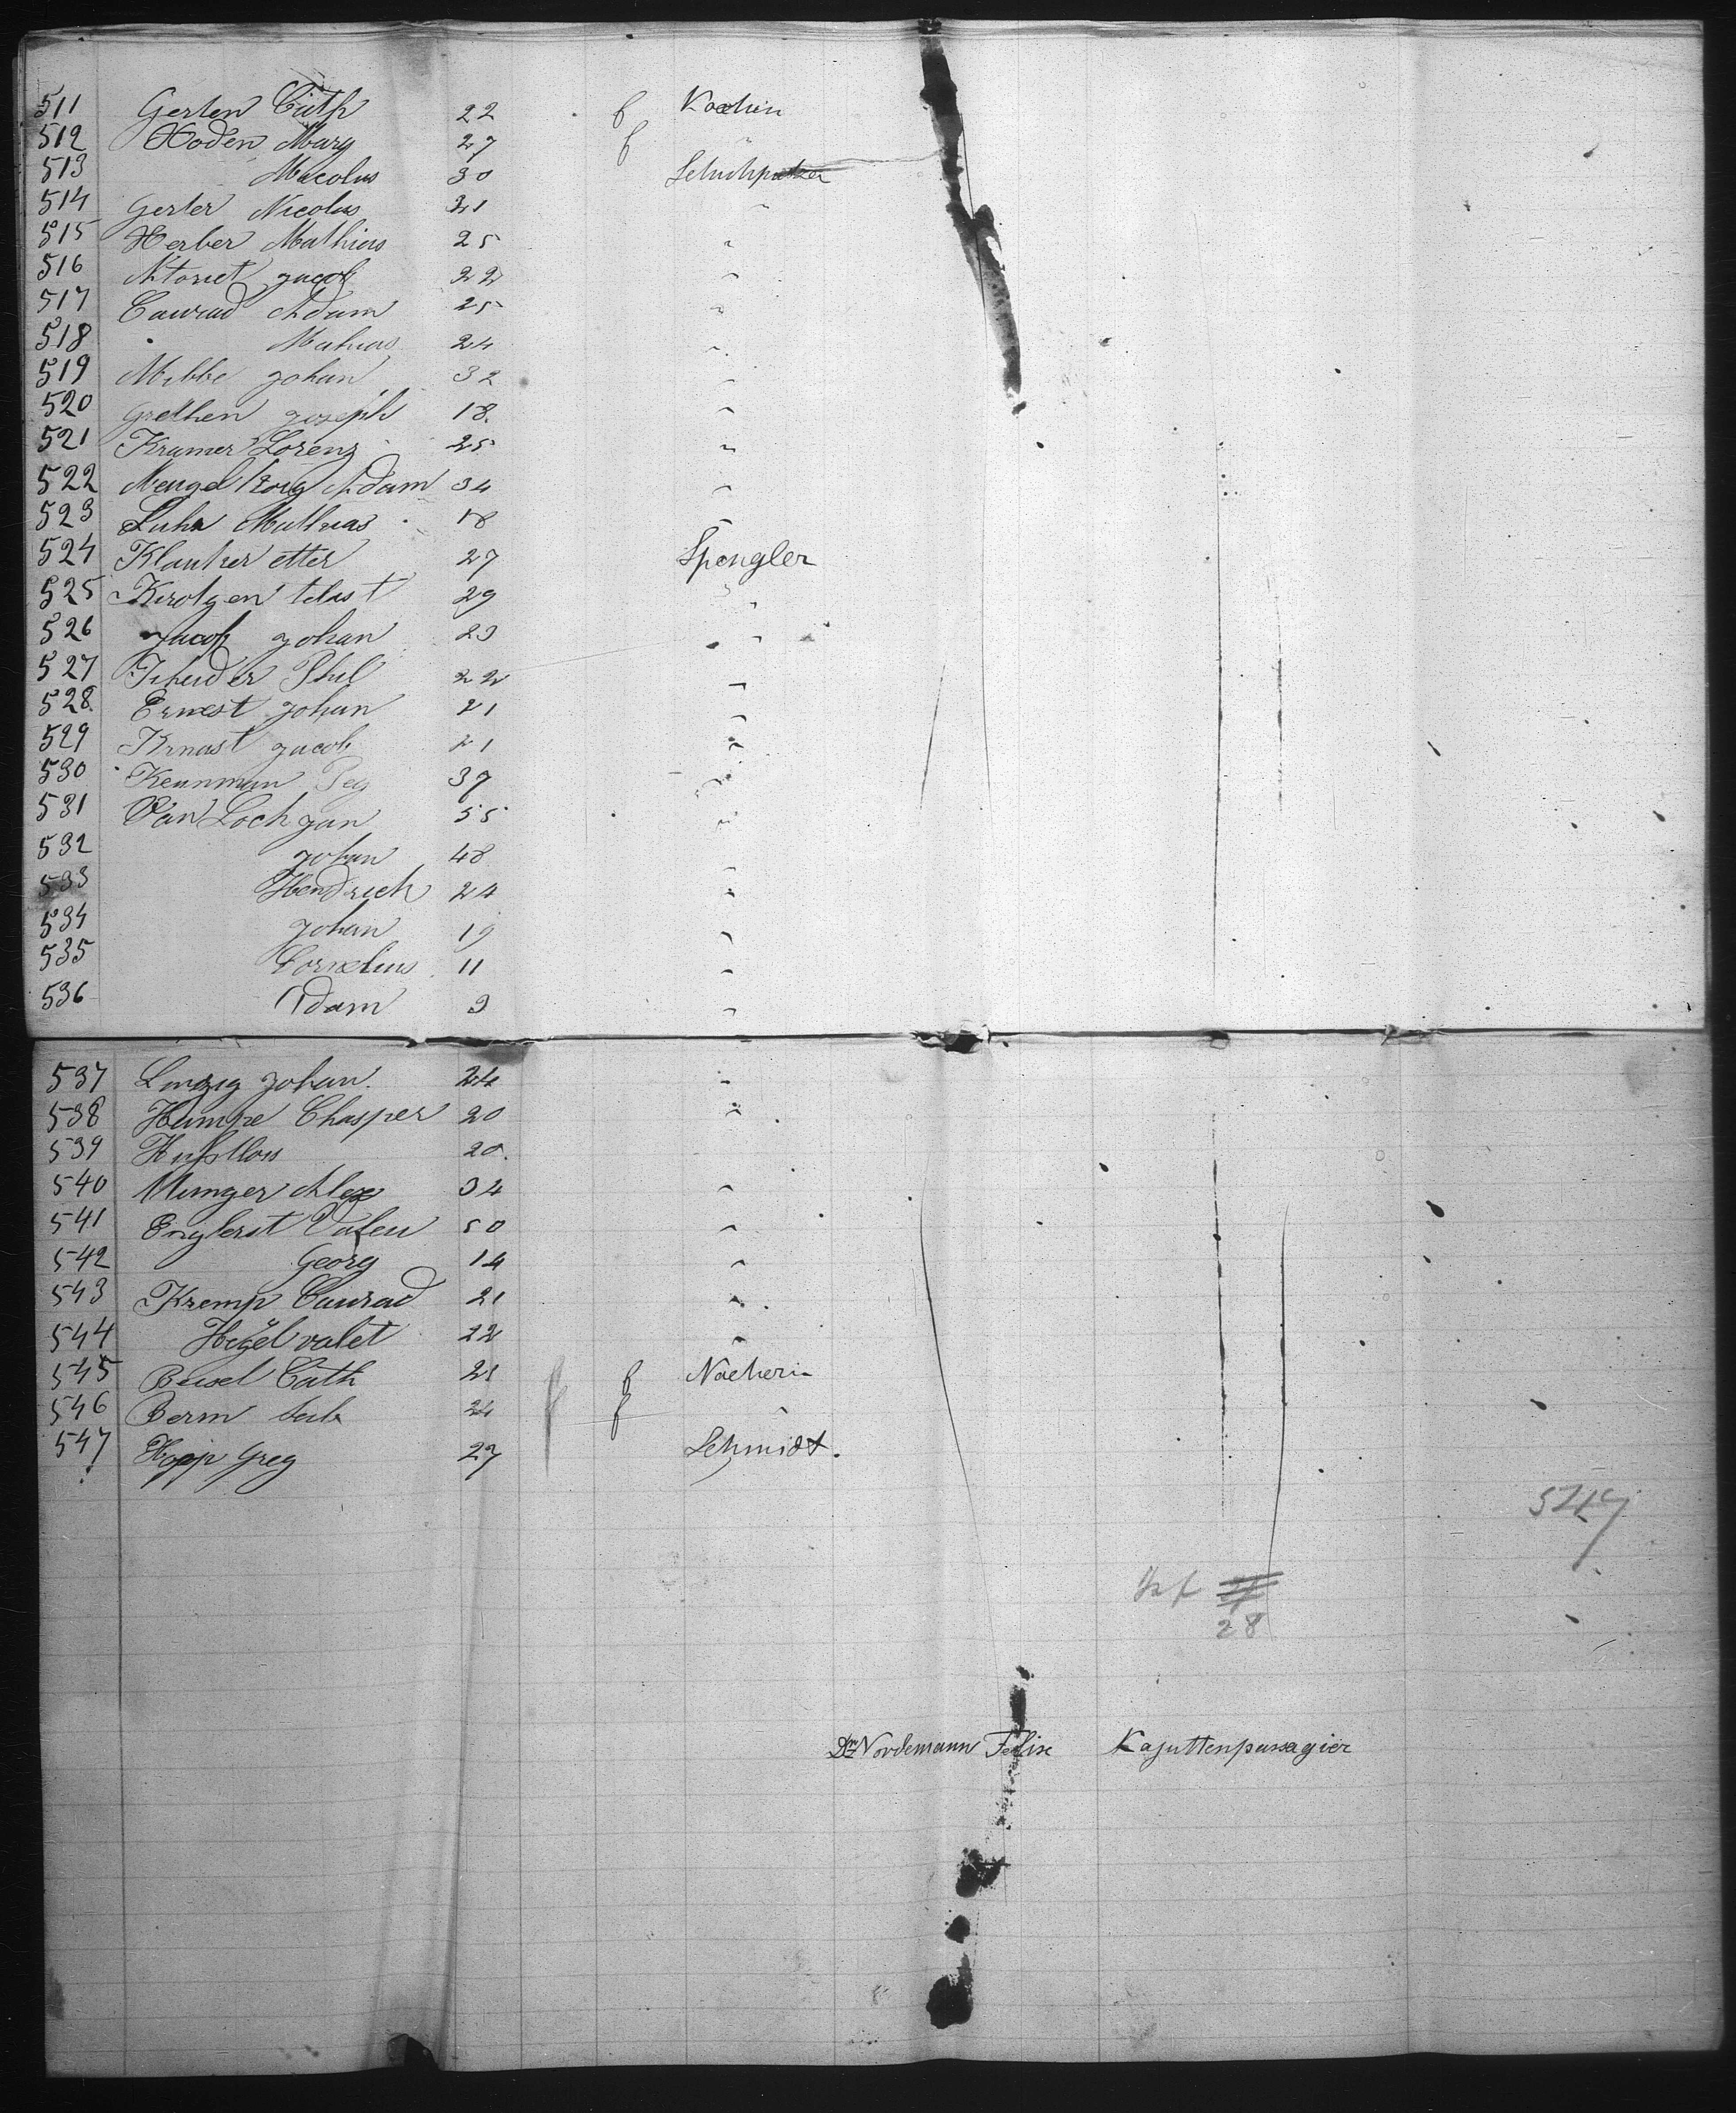 511 Gerten Cath 22 f Kochin
512 Hoden Marg 27 f "
513 Nicolus 30 Schuhputzer
514 Gerter Nicolus 21 "
515 Herber Mathias 25 "
516 jacob 22 "
517 Conrad Adam 25 "
518 " Mathias 24 "
519 Mebbe johan 32 "
520 Grethen joseph 18 "
521 Kramer Lorenz 25 "
522 Adam 34 "
523 Luhn Mathias 18 "
524 27 Spengler
525 29 "
526 jacob johan 23 "
527 Phil 22 "
528 Ernest johan 21 "
529 Krnast jacob 21 "
530 Keunman 37 "
531 Van Loch jan 55 "
532 johan 48 "
533 Hendrich 24 "
534 johan 19 "
535 Cornelius 11 "
536 Adam 9 "
537 johan 24 "
538 Hampe Chasper 20 "
539 20
540 Munger Alex 34 "
541 Englerst Valen 50 "
542 Georg 14 "
543 Kremp Conrad 21 "
544 Hegel valet 22 "
545 Beisel Cath 21 f Naeherin
546 Berm 24 f "
547 Hopp Greg 27 Schmidt.
547
28
Dr Nordemann Felix Kajuttenpassagier